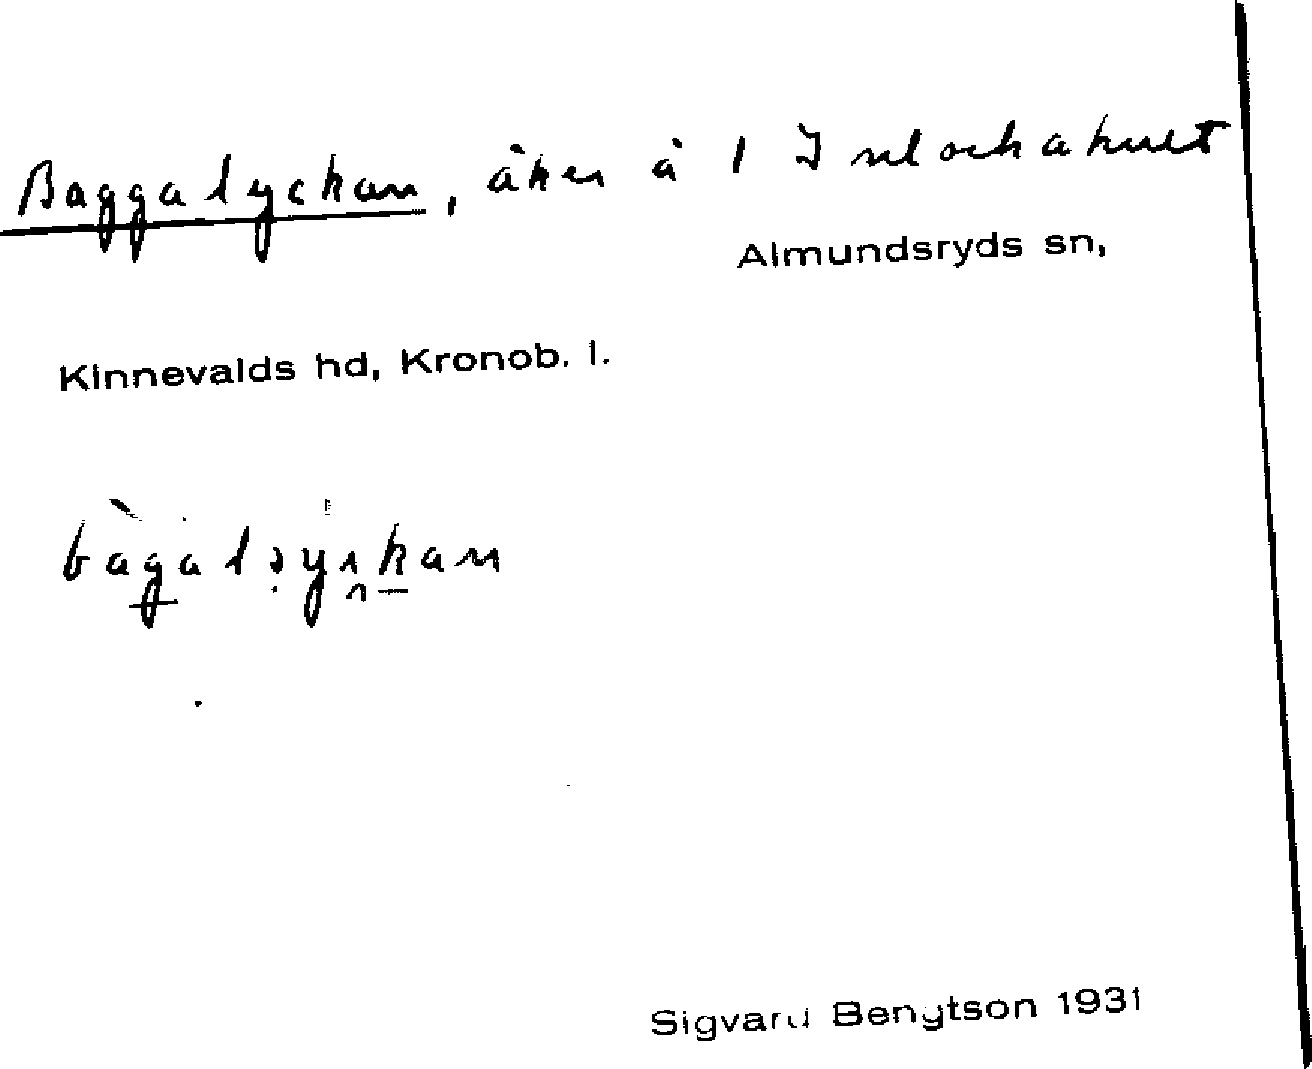 Baggalyckan, åker å 1
Almundsryds sn,
Kinnevalds hd, Kronob. l.
Sigvard Bengtson 1931